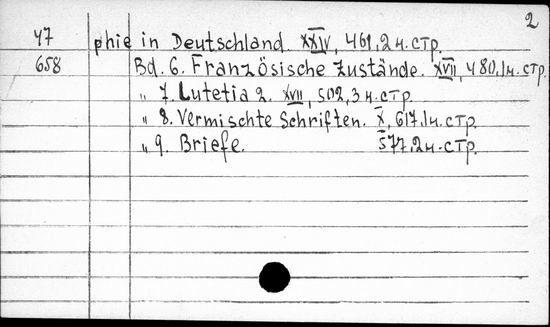 2
47 phie in Deutschland. XXIV, 461, 2 н. стр.
658 Bd. 6. Französische Zustände. XVII, 480, 1 н. стр.
„ 7. Lutetia 2. XVII, 502, 3 н. стр.
„ 8. Vermischte Schriften. X, 617, 1 н. стр.
„ 9. Briefe. 577, 2 н. стр.